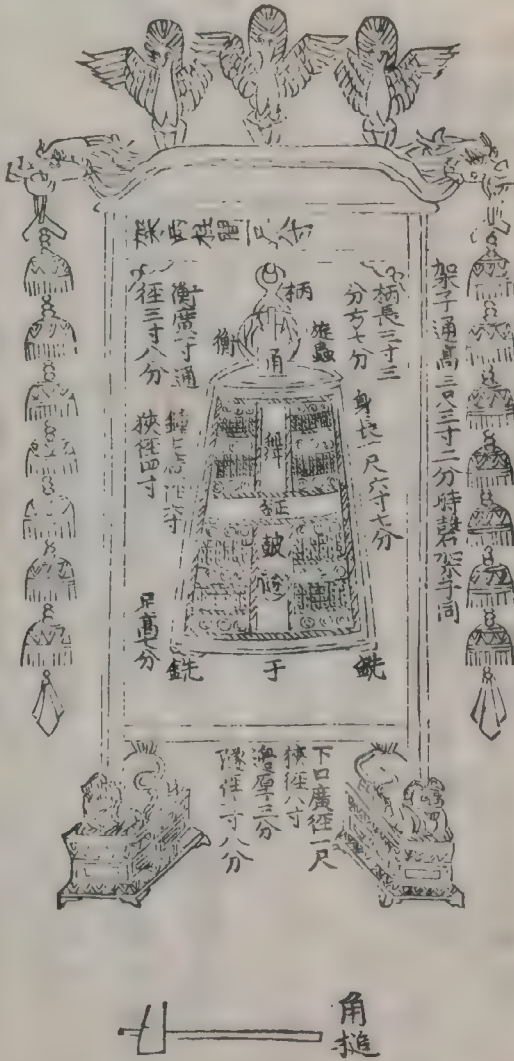 架子通高三尺三寸二分特磬架子同
柄長三寸三
分方七分
身長一尺六寸七分
柄
旋蟲
甬
衡
舞
鉦
鼓
隧
衡廣寸通
徑三寸八分
狹徑四寸
足高七分
銑
于
銑
下口廣徑一尺
狹徑八寸
邊厚三分
隧徑一寸八分
角槌